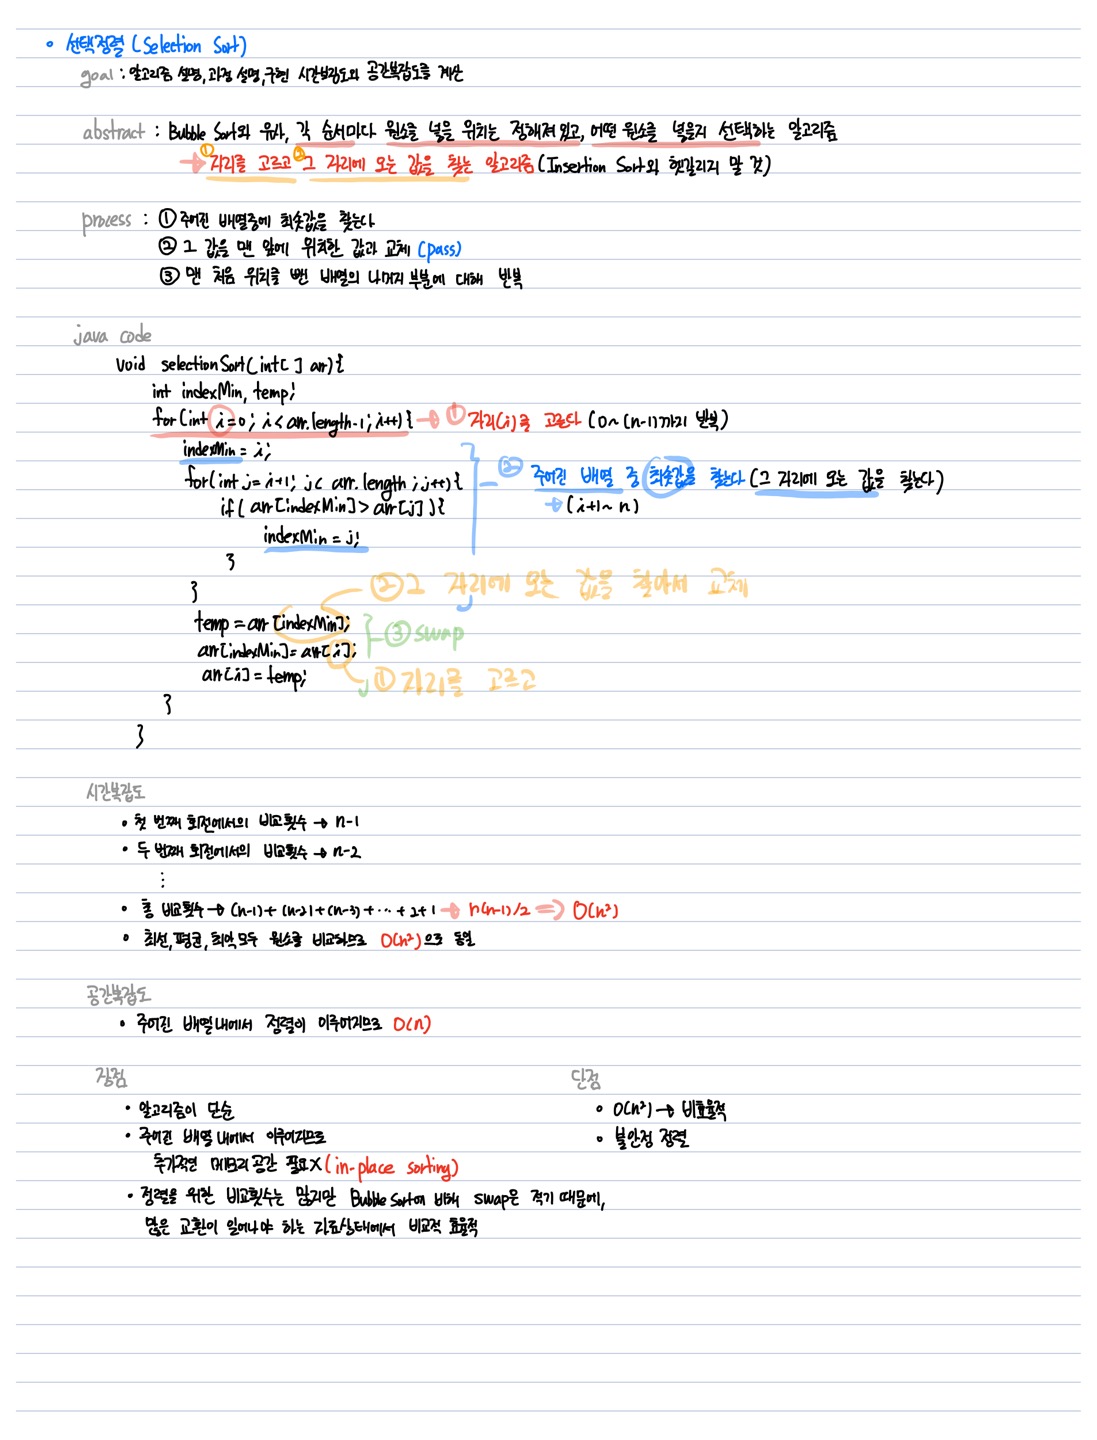 • 선택정렬 (Selection Sort)
goal : 알고리즘 설명, 과정 설명, 구현 시간복잡도와 공간복잡도를 계산
abstract : Bubble Sort와 유사, 각 순서마다 원소를 넣을 위치는 정해져 있고, 어떤 원소를 넣을지 선택하는 알고리즘
→ ① 자리를 고르고 ② 그 자리에 오는 값을 찾는 알고리즘 (Insertion Sort와 헷갈리지 말 것)
process : ① 주어진 배열중에 최솟값을 찾는다
② 그 값을 맨 앞에 위치한 값과 교체 (pass)
③ 맨 처음 위치를 뺀 배열의 나머지 부분에 대해 반복
java code
void selectionSort(int[ ] arr){
int indexMin, temp;
for(int i=0; i<arr.length-1; i++){ → ① 자리(i)를 고른다 (0~(n-1)까지 반복)
indexMin = i;
② 주어진 배열 중 최솟값을 찾는다 (그 자리에 오는 값을 찾는다)
for(int j=i+1; j< arr.length ; j++){
if( arr[indexMin] > arr[j] ){ → (i+1~n)
indexMin = j;
}
② 그 자리에 오는 값을 찾아서 교체
}
temp = arr[indexMin];
③ swap
arr[indexMin] = arr[i];
arr[i] = temp; ① 자리를 고르고
}
}
시간복잡도
• 첫 번째 회전에서의 비교횟수 → n-1
• 두 번째 회전에서의 비교횟수 → n-2
⋮
• 총 비교횟수 → (n-1)+(n-2)+(n-3)+ ⋯ +2+1 → n(n-1)/2 ⇒ O(n²)
• 최선, 평균, 최악 모두 원소를 비교하므로 O(n²)으로 동일
공간복잡도
• 주어진 배열 내에서 정렬이 이루어지므로 O(n)
장점 단점
• 알고리즘이 단순 • O(n²) → 비효율적
• 주어진 배열 내에서 이루어지므로 • 불안정 정렬
추가적인 메모리 공간 필요X (in-place sorting)
• 정렬을 위한 비교횟수는 많지만 Bubble Sort에 비해 swap은 적기 때문에,
많은 교환이 일어나야 하는 자료상태에서 비교적 효율적